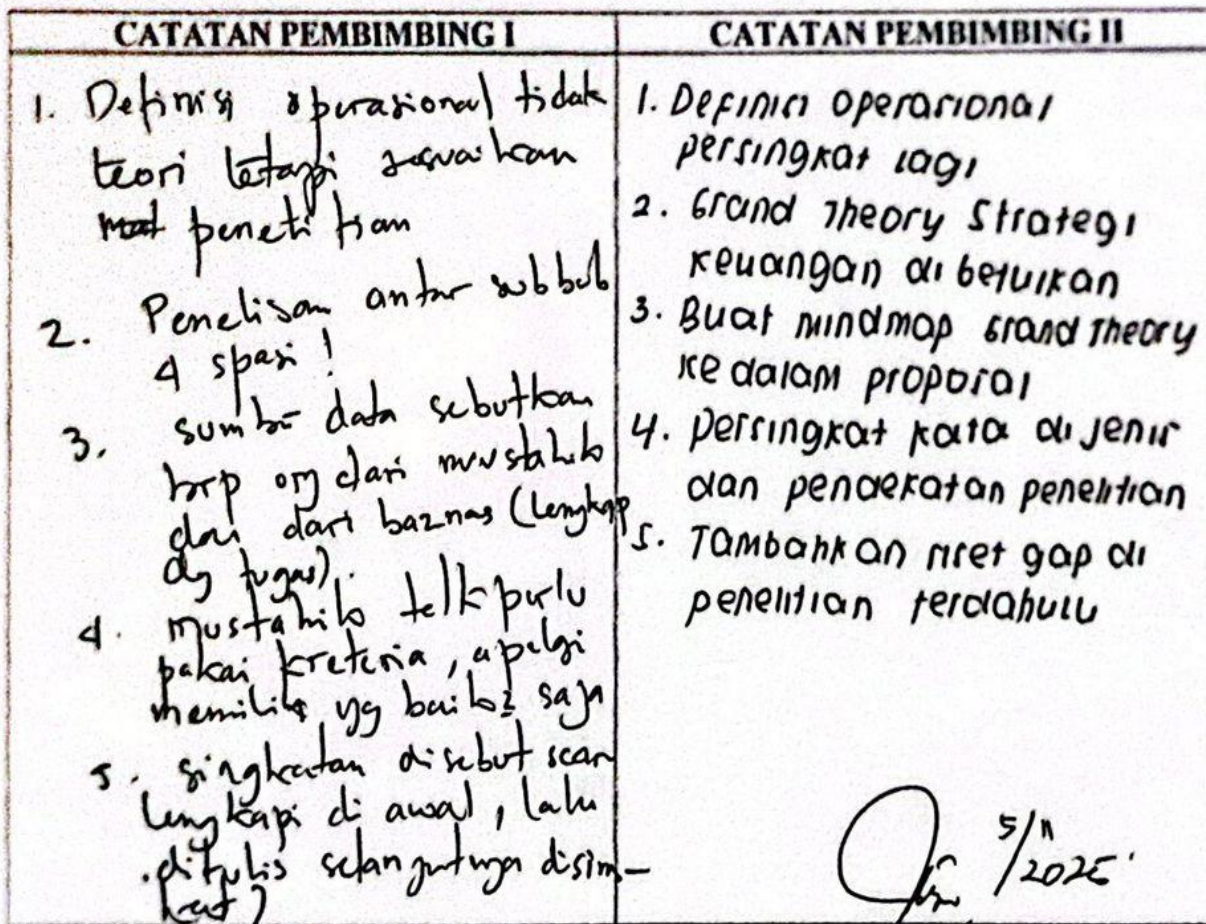 CATATAN PEMBIMBING I
1. Definisi operasional tidak
teori tetapi sesuaikan
penelitian
2. Penelisan antar subbab
4 spasi !
3. sumber data sebutkan
brp org dari mustahik
dan dari baznas (lengkap
dg tugas).
4. mustahik tdk perlu
pakai kreteria, apalgi
memilih yg baik2 saja
5. singkatan disebut scan
lengkapi di awal, lalu
ditulis selanjutnya disim-
kat)
CATATAN PEMBIMBING II
1. Definisi operasional
persingkat lagi
2. Grand Theory Strategi
keuangan di betulkan
3. Buat mindmap Grand Theory
ke dalam proposal
4. persingkat kata di jenis
dan pendekatan penelitian
5. Tambahkan riset gap di
penelitian terdahulu
5/11
2025